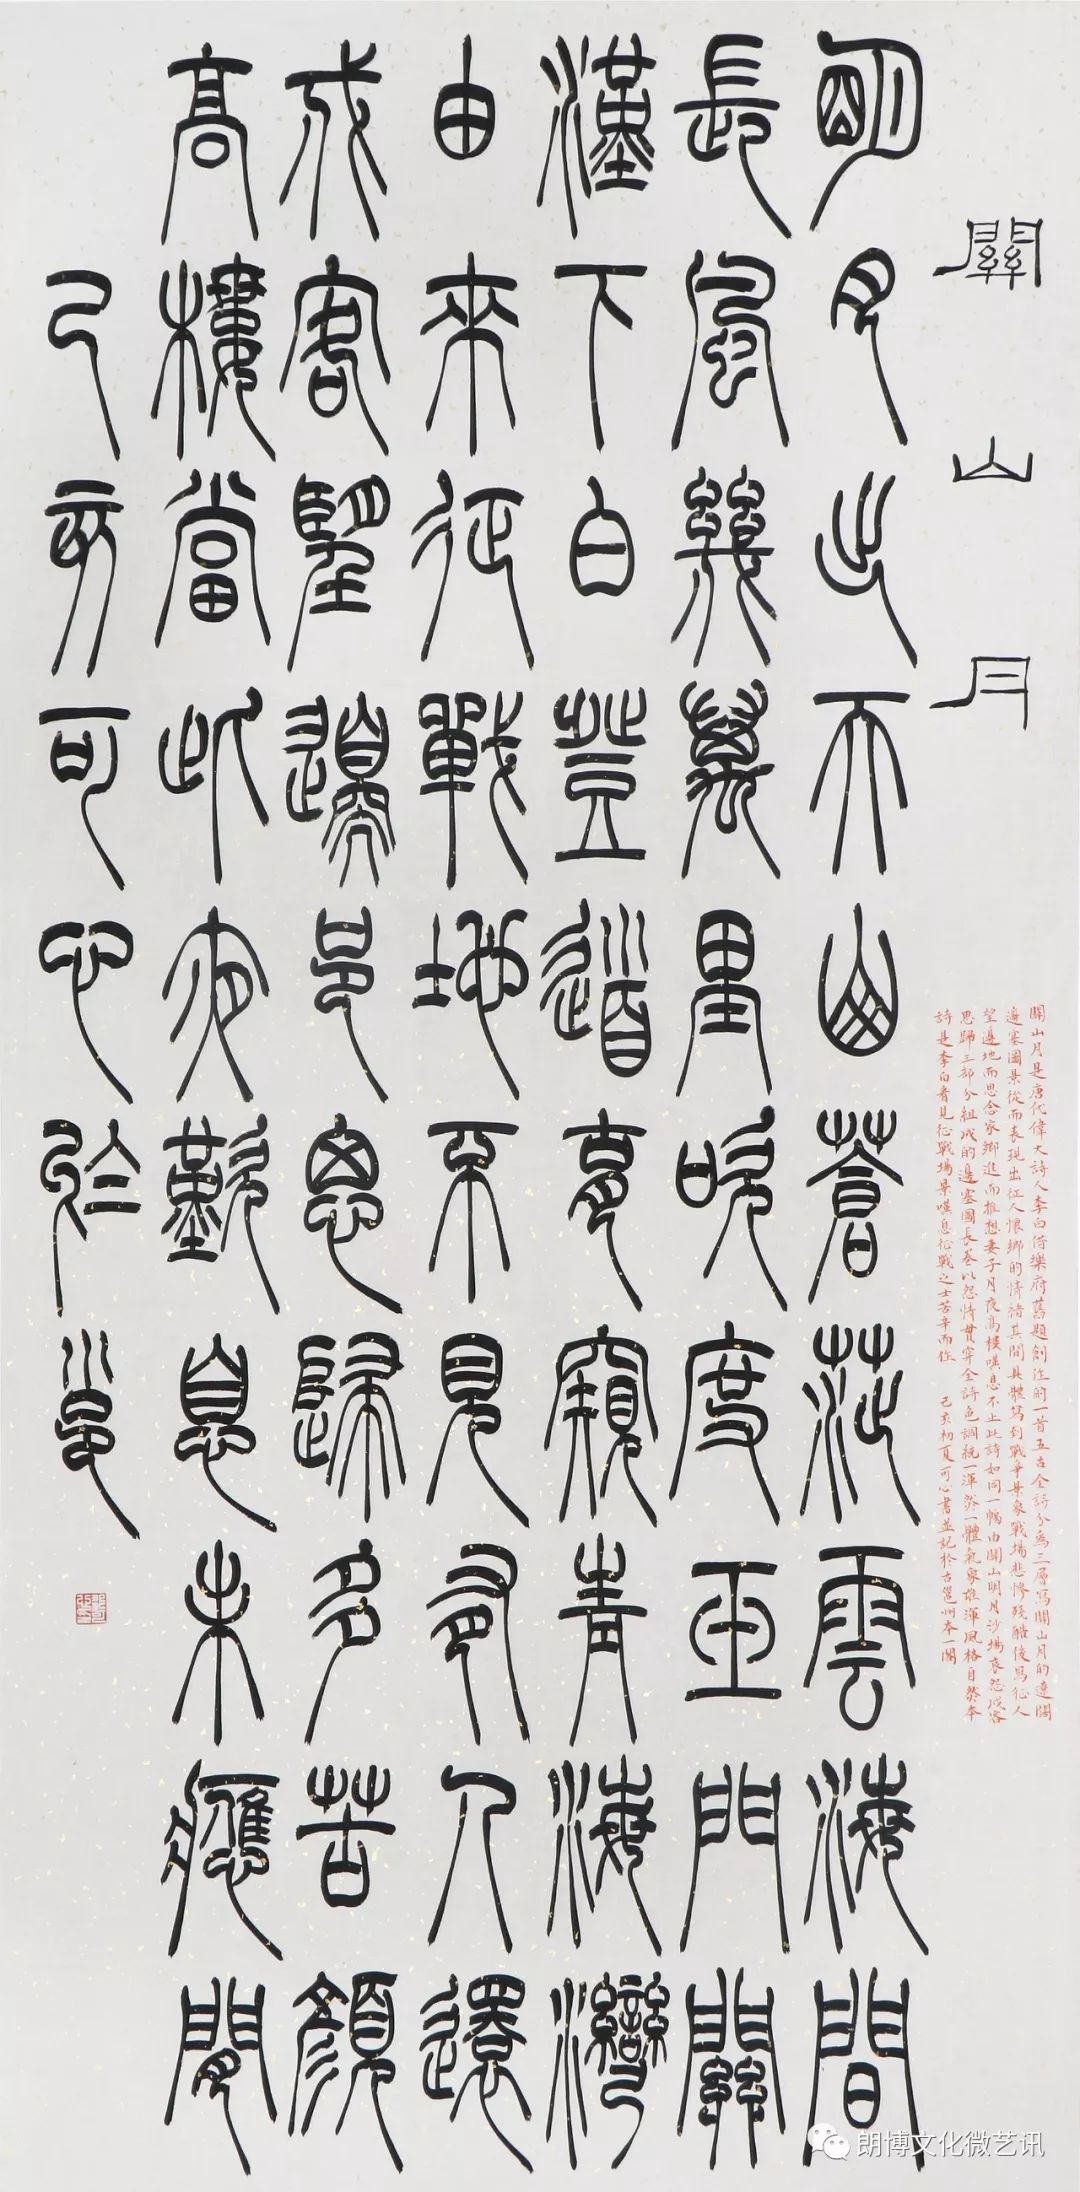 關山月
明月出天山蒼茫雲海間
長風幾萬里吹度玉門關
漢下白登道胡窺青海灣
由來征戰地不見有人還
戍客望邊邑思歸多苦顏
高樓當此夜歎息未應閒
己亥可心於邕
關山月是唐代偉大詩人李白借樂府舊題創作的一首五古全詩分為三層寫關山月的遼闊
邊塞圖景從而表現出征人懷鄉的情緒其間具體寫到戰爭景象戰場悲慘殘酷後寫征人
望邊地而思念家鄉進而推想妻子月夜高樓嘆息不止此詩如同一幅由關山明月沙場哀怨戍客
思歸三部分組成的邊塞圖長卷以怨情貫穿全詩色調統一渾然一體氣象雄渾風格自然本
詩是李白看見征戰場景嘆息征戰之士苦辛而作 己亥初夏可心書並記於古邕州本一閣
朗博文化微艺讯